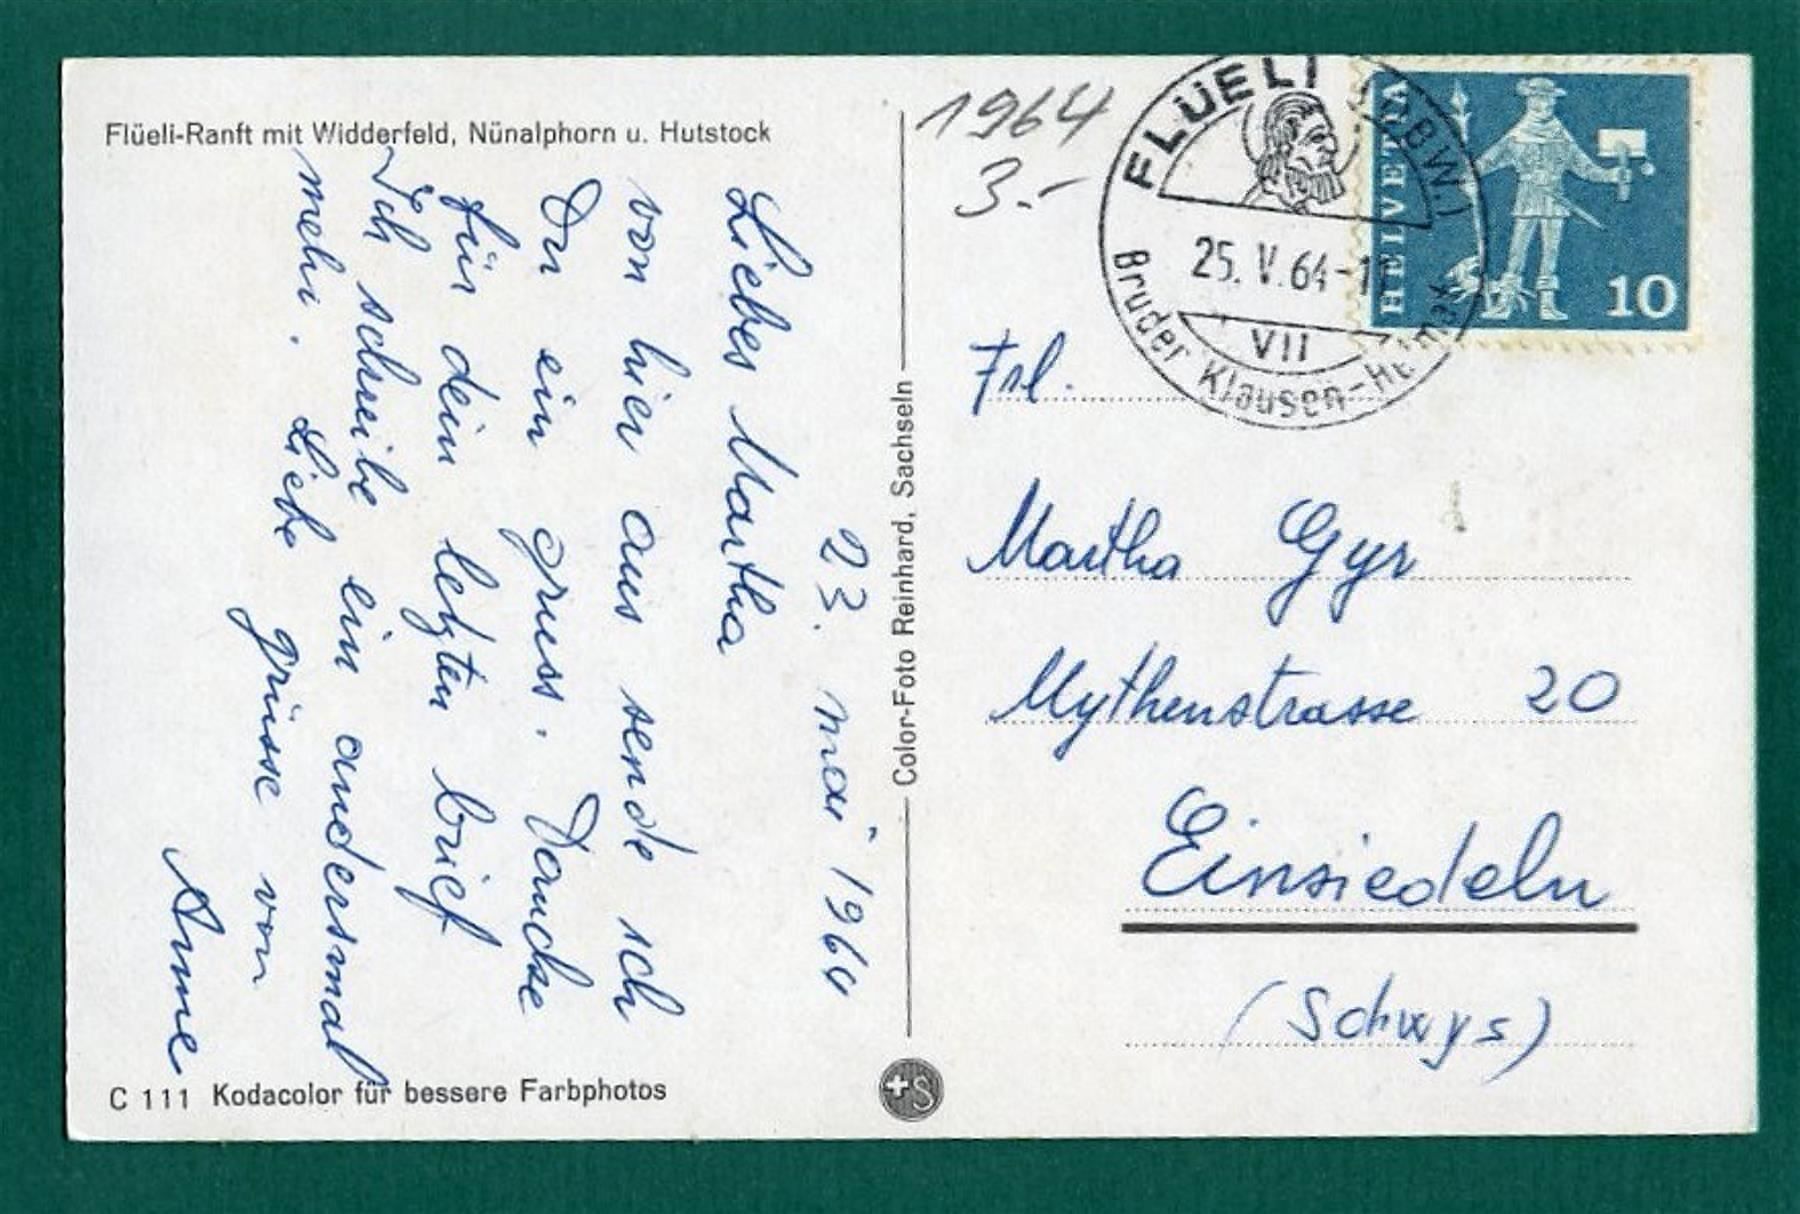 Flüeli-Ranft mit Widderfeld, Nünalphorn u. Hutstock
23. mai 1964
Liebes Martha
von hier aus sende ich
Dir ein gruss. Dancke
für dein letzten brief
Ich schreibe ein andersmal
mehr. Liebe grüsse von
Anne
C 111 Kodacolor für bessere Farbphotos
Color-Foto Reinhard, Sachseln
+S
1964
3.-
FLÜELI (OBW.)
25. V. 64-11
VII
Bruder Klausen-Heimat
HELVETIA
10
Frl.
Martha Gyr
Mythenstrasse 20
Einsiedeln
(Schwys)